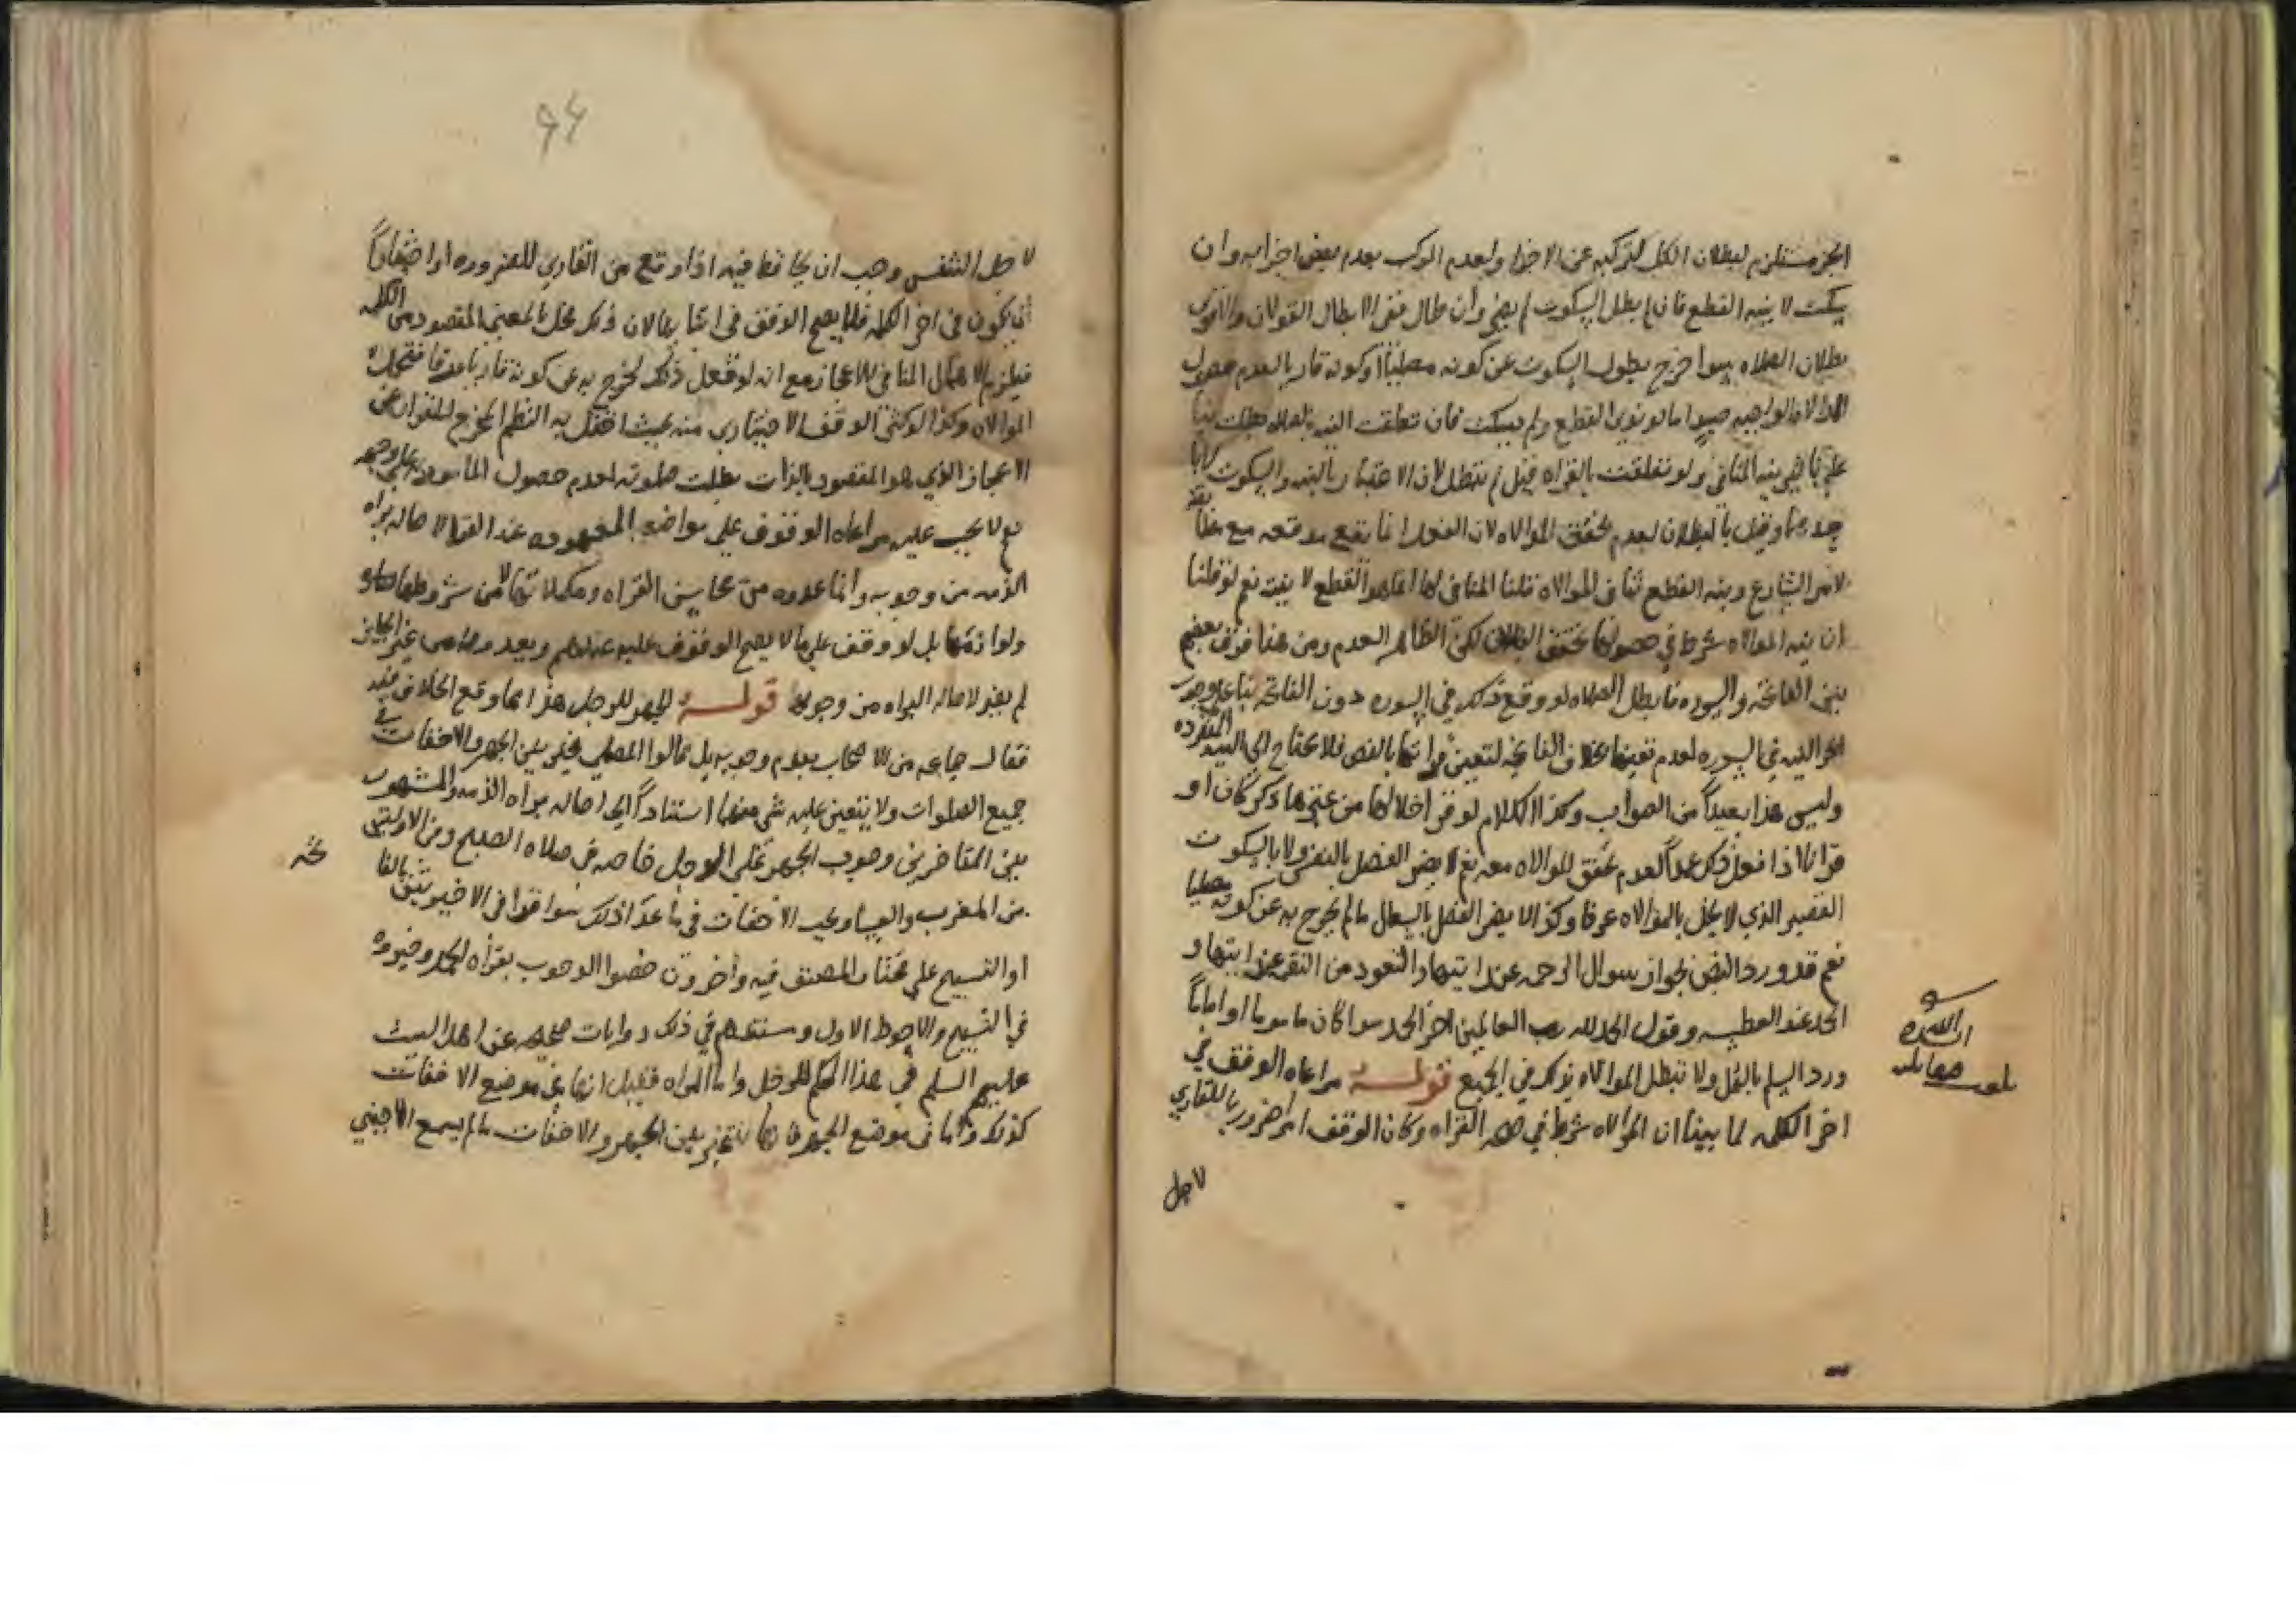 الجزء مستلزم لبطلان الكل لتركبه عن الاجزاء ولعدم المركب بعدم بعض اجزايه وان
سكت لا بنيه القطع فان لم يطل السكوت لم يضر وان طال ففي الابطال القولان والاقوى
بطلان الصلاه سوا خرج بطول السكوت عن كونه مصليا او كونه قاريا لعدم حصول
الموالاه الواجبه حينيذ اما لو نوى القطع ولم يسكت فان تعلقت النيه بالصلاه بطلت بنا
على تاثير نيه المنافي ولو تعلقت بالقراه قيل لم تبطل لان الاعتبار بالنيه والسكوت
وقيل بالبطلان لعدم تحقق الموالاه لان الفعل انما يقع موقعه مع
لامر الشارع ونيه القطع تنافي الموالاه قلنا المنافي لها انما هو القطع لا نيته نعم لو قلنا
ان نيه الموالاه شرط في حصولها تحقق البطلان لكن الظاهر العدم ومن هنا فرق بعضهم
بين الفاتحه والسوره فابطل الصلاه لو وقع ذلك في السوره دون الفاتحه بنا على وجوب
النيه في السوره لعدم تعينها بخلاف الفاتحه لتعين قراتها بالنص فلا يحتاج الى النيه المفرده
وليس هذا بعيداً من الصواب وكذا الكلام لو قرا خلالها من غيرها ذكر كان او
قرانا اذا فعل ذلك عمداً لعدم تحقق الموالاه معه نعم لا يضر الفصل بالنفس ولا بالسكوت
القصير الذي لا يخل بالموالاه عرفا وكذا لا يضر الفصل بالسعال ما لم يخرج به عن كونه مصليا
نعم قد ورد النص بجواز سوال الرحمه عند ايتها والتعوذ من النقمه عند ايتها و
الحمد عند العطسه وقول الحمد لله رب العالمين اخر الحمد سوا كان ماموما او اماماً
ورد السلم بالمثل ولا تبطل الموالاه بذلك في الجميع قوله مراعاه الوقف في
اخر الكلمه لما بينا ان الموالاه شرط في صحه القراه وكان الوقف امر ضروريا للقاري
لاجل
بلغ مقابله
لاجل التنفس وجب ان يحافظ فيه اذا وقع من القاري للضروره او اختياراً
ان يكون في اخر الكلمه فلا يصح الوقف في اثنايها لان ذلك مخل بالمعنى المقصود من الكلمه
فيلزم الاهمال المنافي للاعجاز مع انه لو فعل ذلك لخرج به عن كونه قاريا عرفا فتختل
الموالاه وكذا لو كثر الوقف الاختياري منه بحيث اختل به النظم المخرج للقران عن
الاعجاز الذي هو المقصود بالذات بطلت صلوته لعدم حصول المامور به على وجهه
نعم لا يجب عليه مراعاه الوقوف على مواضعه المعهوده عند القرا لاصاله براه
الذمه من وجوبه وانما عدوه من محاسن القراه ومكملاتها لا من شروطها
ولوازمها بل لو وقف على ما لا يصح الوقوف عليه عندهم ويعدونه من غير الجايز
لم يضر لاصاله البراه من وجوبه قوله الجهر للرجل هذا مما وقع الخلاف فيه
فقال جماعه من الاصحاب بعدم وجوبه بل قالوا المصلي مخير بين الجهر والاخفات في
جميع الصلوات ولا يتعين عليه شي منهما استناداً الى اصاله براه الذمه والمشهور
بين المتاخرين وجوب الجهر على الرجل خاصه في صلاه الصبح ومن الاوليتين
من المغرب والعشا ويجب الاخفات في ما عدا ذلك سوا قرا في الاخيرتين بالفاتحه
او التسبيح على مختار المصنف فيه واخرون خصوا الوجوب بقراه الحمد وخيروه
في التسبيح والاحوط الاول ومستندهم في ذلك روايات صحيحه عن اهل البيت
عليهم السلم في هذا الحكم للرجل واما المراه فقيل انها في موضع الاخفات
كذلك واما في موضع الجهر فانها تتخير بين الجهر والاخفات ما لم يسمع الاجنبي